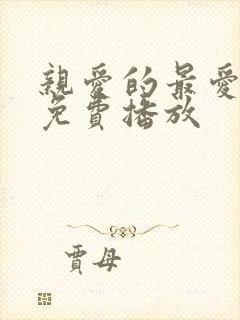 親愛的最愛
免費播放
賈母